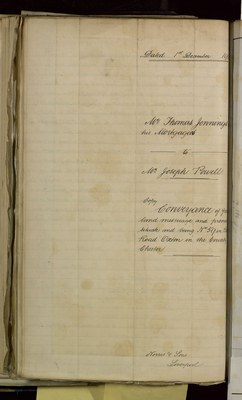 Dated 1st December
Mr. Thomas Jennings
his Mortgagee
to
Mr. Joseph Powell
Copy
Conveyance of
land messuage and
and being No
Road Oxton in the County
Chester
& Son
Liverpool